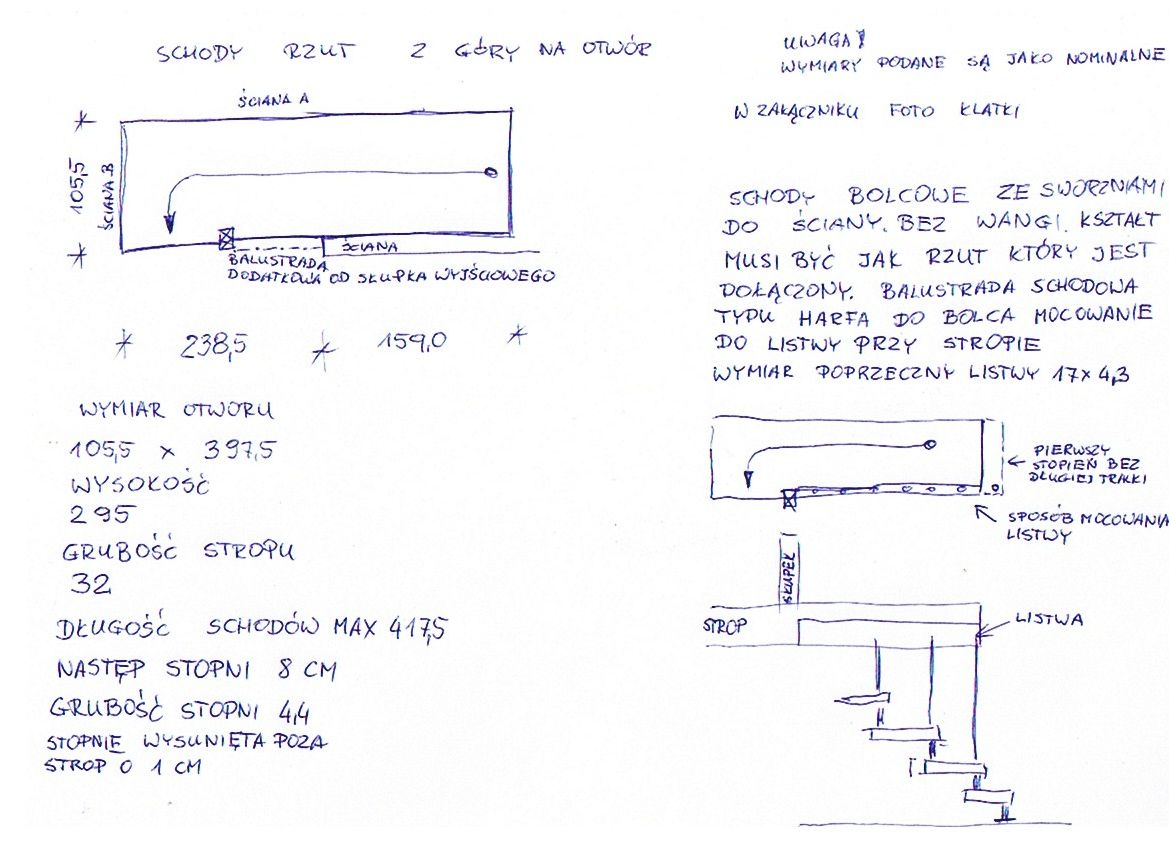 SCHODY RZUT Z GÓRY NA OTWÓR
ŚCIANA A
105,5
ŚCIANA B
ŚCIANA
BALUSTRADA
DODATKOWA OD SŁUPKA WYJŚCIOWEGO
238,5 159,0
WYMIAR OTWORU
105,5 x 397,5
WYSOKOŚĆ
295
GRUBOŚĆ STROPU
32
DŁUGOŚĆ SCHODÓW MAX 417,5
NASTĘP STOPNI 8 CM
GRUBOŚĆ STOPNI 4,4
STOPNIE WYSUNIĘTA POZA
STROP O 1 CM
UWAGA!
WYMIARY PODANE SĄ JAKO NOMINALNE
W ZAŁĄCZNIKU FOTO KLATKI
SCHODY BOLCOWE ZE SWORZNIAMI
DO ŚCIANY. BEZ WANGI. KSZTAŁT
MUSI BYĆ JAK RZUT KTÓRY JEST
DOŁĄCZONY. BALUSTRADA SCHODOWA
TYPU HARFA DO BOLCA MOCOWANIE
DO LISTWY PRZY STROPIE
WYMIAR POPRZECZNY LISTWY 17x4,3
PIERWSZY
STOPIEŃ BEZ
DŁUGIEJ TRALKI
SPOSÓB MOCOWANIA
LISTWY
SŁUPEK
STROP
LISTWA